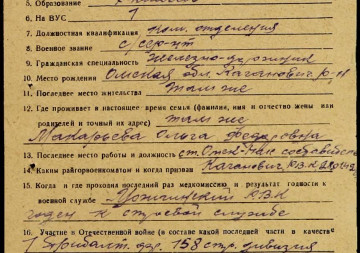 5. Образование
6. На ВУС 1
7. Должностная квалификация ком. отделения
8. Военное звание с/серж-нт
9. Гражданская специальность
10. Место рождения Омская обл. Каганович. р-н
11. Последнее место жительства там же
12. Где проживает в настоящее время семья (фамилия, имя и отчество жены или
родителей и точный их адрес) там же
Макарьева Ольга Федоровна
13. Последнее место работы и должность ст. Омск
14. Каким райгорвоенкоматом и когда призван Каганович. РВК
15. Когда и где проходил последний раз медкомиссию и результат годности к
военной службе РВК
годен к строевой службе
16. Участие в Отечественной войне (в составе какой последней части в качестве
1 Прибалт. фр. 158 стр. дивизия